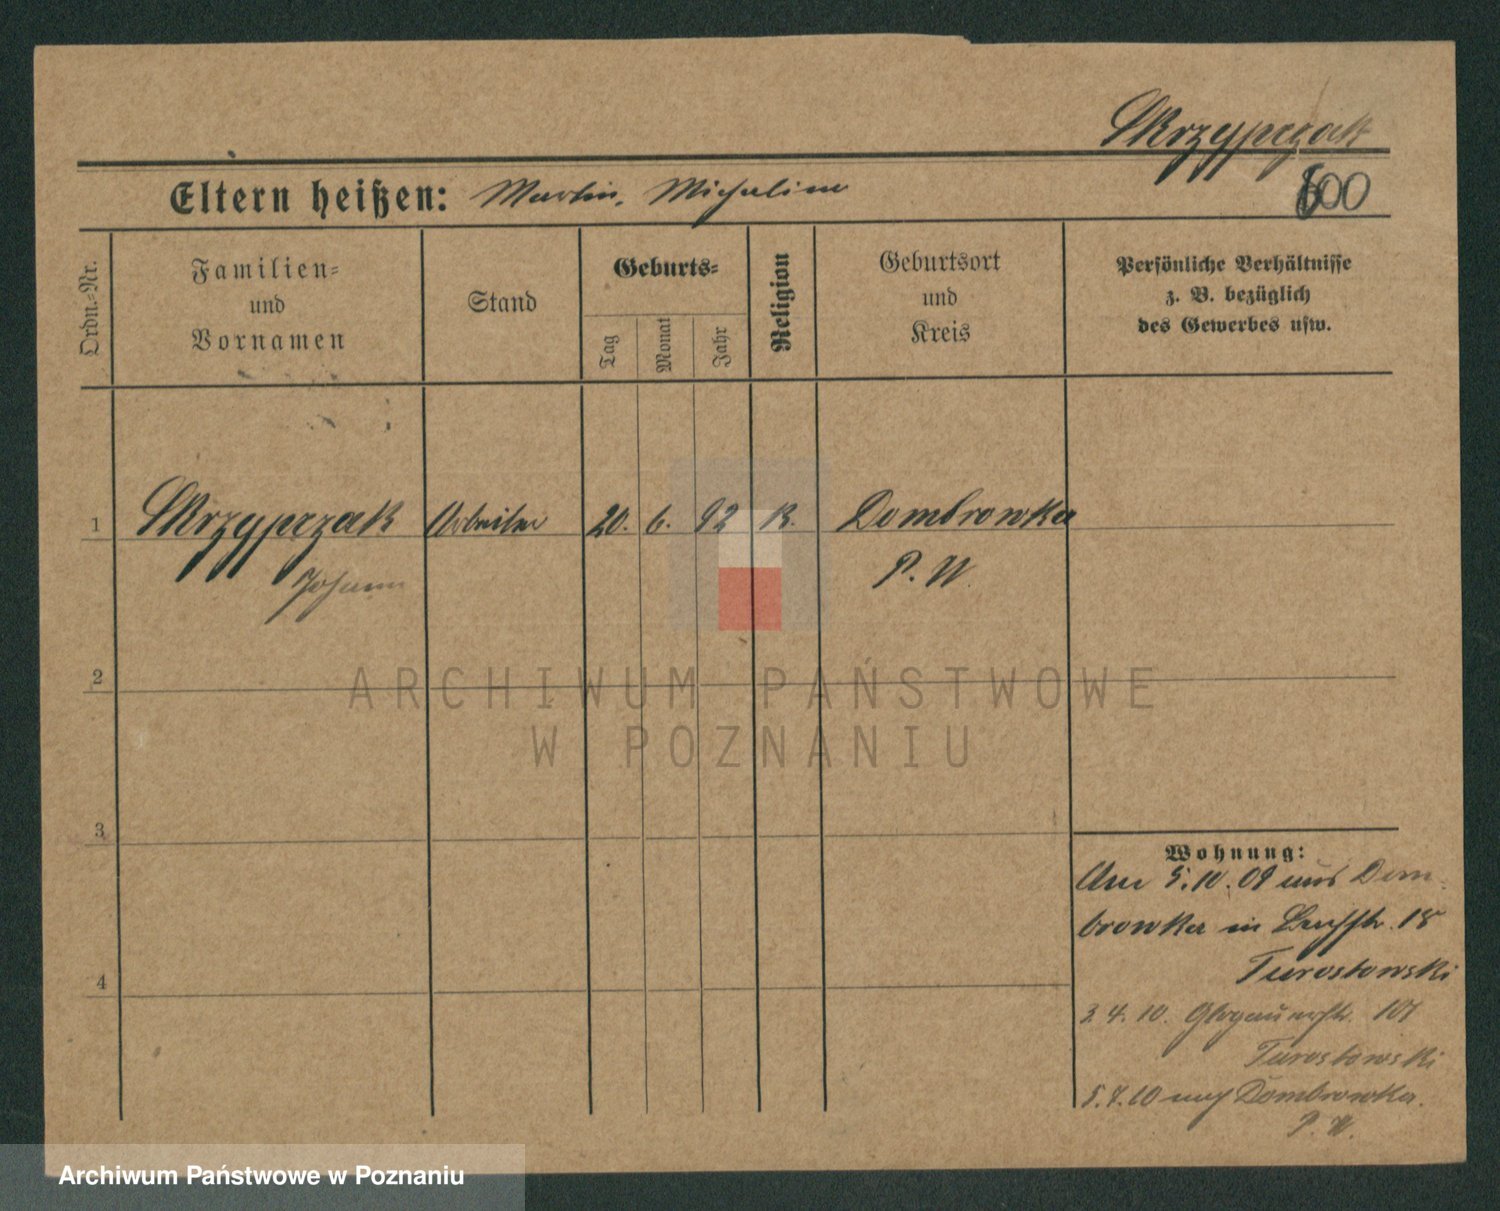 Skrzypczak
Eltern heißen: Martin, Michaline
600
Ordn.-Nr.
Familien-
und
Vornamen
Stand
Geburts-
Tag
Monat
Jahr
Religion
Geburtsort
und
Kreis
Persönliche Verhältnisse
z. B. bezüglich
des Gewerbes usw.
1 Skrzypczak Arbeiter 20. 6. 92 K. Dombrowka
Johann P. W.
2
ARCHIWUM PAŃSTWOWE
W POZNANIU
3
Wohnung:
Am 5.10.09 aus Dom-
browka in 18
Turostowski
4
3.4.10. Glogauerstr. 107
Turostowski
5.7.10 nach Dombrowka.
P. W.
Archiwum Państwowe w Poznaniu